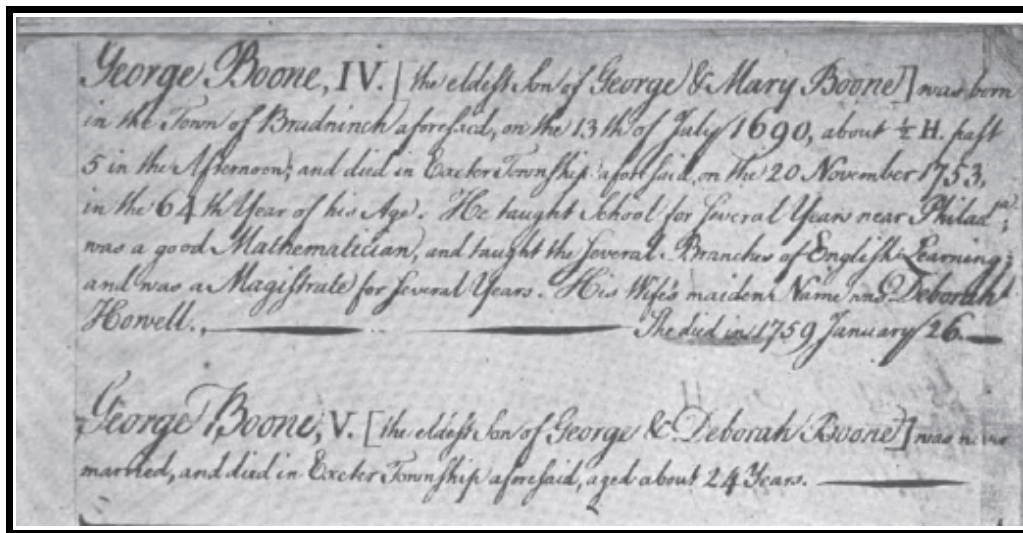 George Boone, IV. [the eldest Son of George & Mary Boone] was born
in the Town of Bradninch aforesaid, on the 13th of July 1690, about ½ H. past
5 in the Afternoon; and died in Exeter Township aforesaid, on the 20 November 1753,
in the 64th Year of his Age. He taught School for several Years near Philadᵃ;
was a good Mathematician, and taught the several Branches of English Learning;
and was a Magistrate for several Years. His Wife's maiden Name was Deborah
Howell. She died in 1759 January 26.
George Boone, V. [the eldest Son of George & Deborah Boone] was never
married, and died in Exeter Township aforesaid, aged about 24 Years.